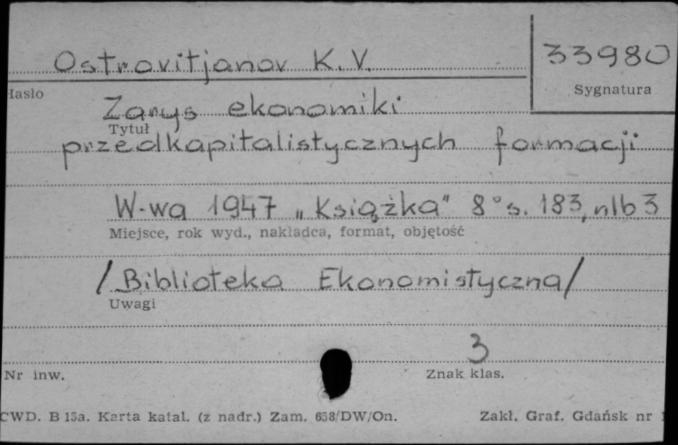 Ostrovitjanov K.V. 33980
Hasło Sygnatura
Zarys ekonomiki
Tytuł
przedkapitalistycznych formacji
W-wa 1947 „Książka" 8° s. 183, nlb 3
Miejsce, rok wyd., nakładca, format, objętość
/Biblioteka Ekonomistyczna/
Uwagi
3
Nr inw. Znak klas.
CWD. B 15a. Karta katal. (z nadr.) Zam. 658/DW/On. Zakł. Graf. Gdańsk nr 1